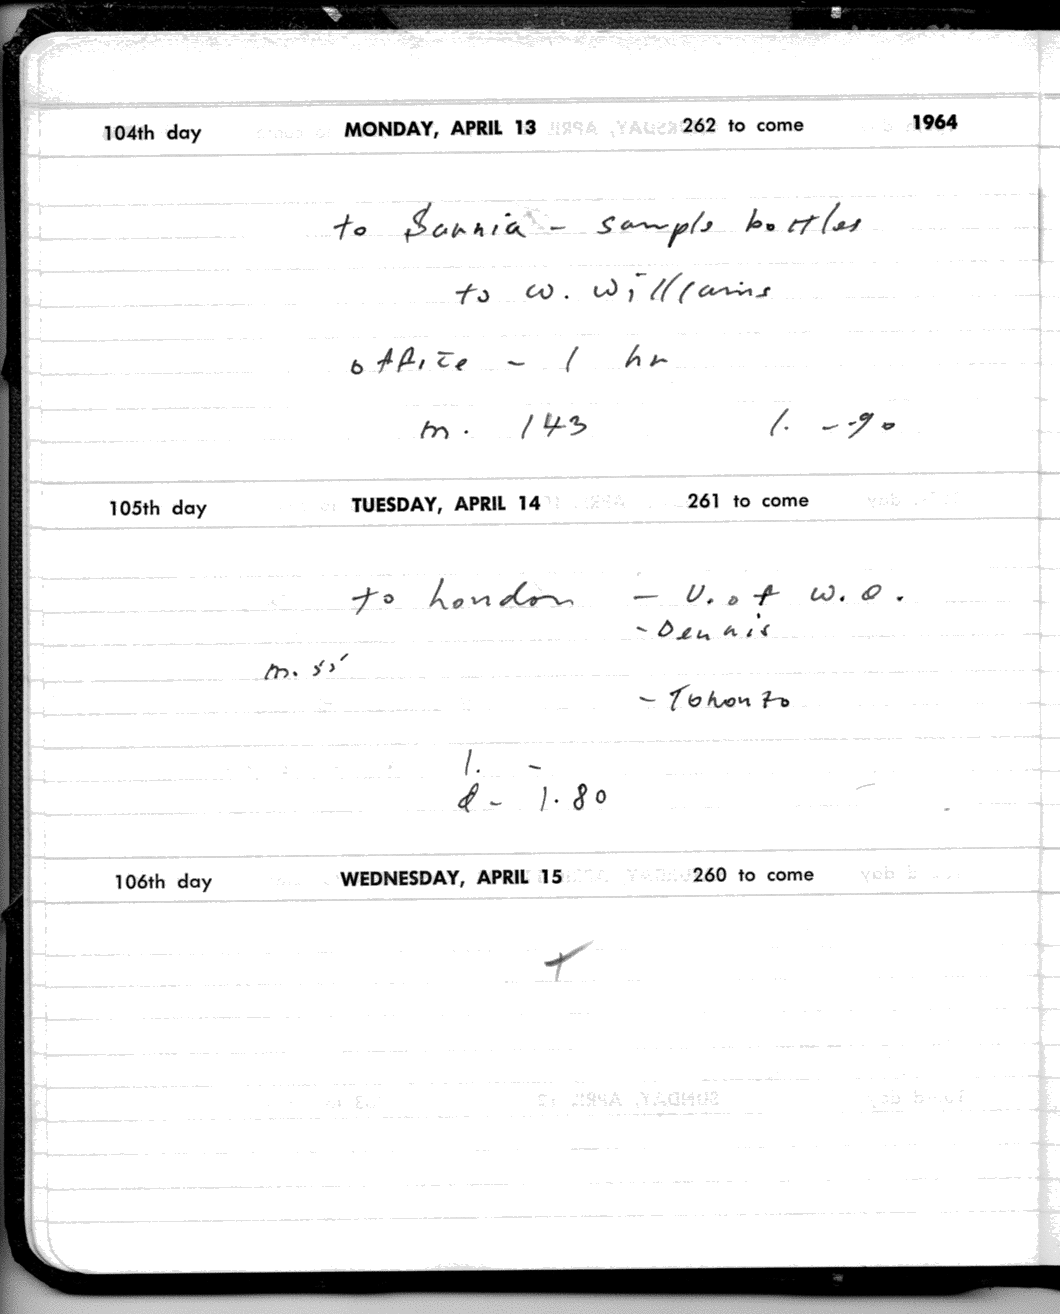 104th day MONDAY, APRIL 13 262 to come 1964
to Sarnia - sample bottles
to W. Williams
office - 1 hr
m. 143 l. - .90
105th day TUESDAY, APRIL 14 261 to come
to London - U. of W.O.
- Dennis
m. 55
- Toronto
l. -
d - 1.80
106th day WEDNESDAY, APRIL 15 260 to come